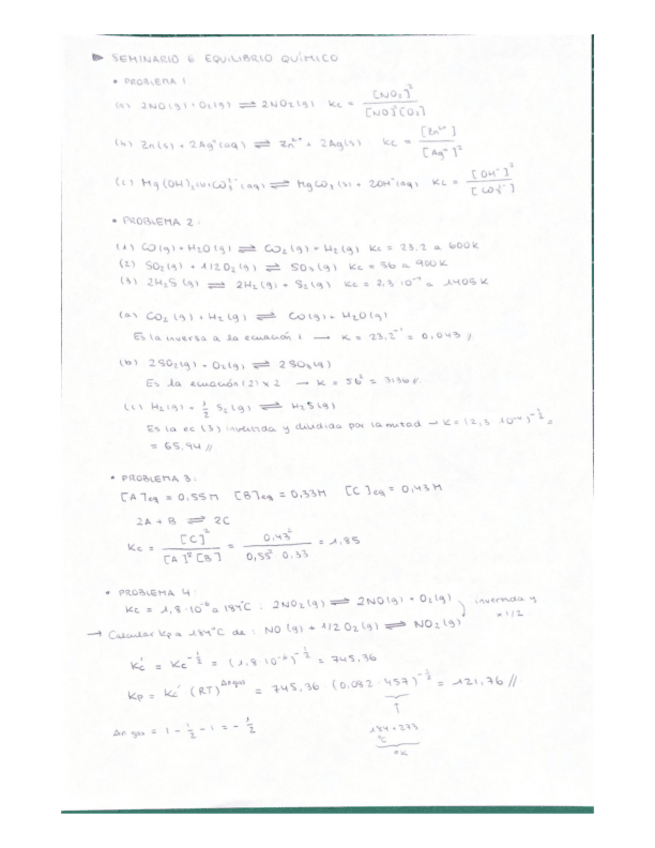 ▶ SEMINARIO 6 EQUILIBRIO QUÍMICO
• PROBLEMA 1
(a) 2NO(g) + O₂(g) ⇌ 2NO₂(g) Kc = [NO₂]² / [NO]²[O₂]
(b) Zn(s) + 2Ag⁺(aq) ⇌ Zn²⁺ + 2Ag(s) Kc = [Zn²⁺] / [Ag⁺]²
(c) Mg(OH)₂(s) CO₃²⁻(aq) ⇌ MgCO₃(s) + 2OH⁻(aq) Kc = [OH⁻]² / [CO₃²⁻]
• PROBLEMA 2:
(1) CO(g) + H₂O(g) ⇌ CO₂(g) + H₂(g) Kc = 23,2 a 600K
(2) SO₂(g) + 1/2O₂(g) ⇌ SO₃(g) Kc = 56 a 900K
(3) 2H₂S(g) ⇌ 2H₂(g) + S₂(g) Kc = 2,3·10⁻⁴ a 1405K
(a) CO₂(g) + H₂(g) ⇌ CO(g) + H₂O(g)
Es la inversa a la ecuación 1 → K = 23,2⁻¹ = 0,043 //
(b) 2SO₂(g) + O₂(g) ⇌ 2SO₃(g)
Es la ecuación (2) x 2 → K = 56² = 3136 //
(c) H₂(g) + 1/2 S₂(g) ⇌ H₂S(g)
Es la ec (3) invertida y dividida por la mitad → K = (2,3 · 10⁻⁴)^-1/2 =
= 65,94 //
• PROBLEMA 3:
[A]eq = 0,55M [B]eq = 0,33M [C]eq = 0,43M
2A + B ⇌ 2C
Kc = [C]² / [A]²[B] = 0,43² / 0,55² 0,33 = 1,85
• PROBLEMA 4:
Kc = 1,8·10⁻⁶ a 184°C : 2NO₂(g) ⇌ 2NO(g) + O₂(g) invertida y
x 1/2
→ Calcular Kp a 184°C de : NO(g) + 1/2O₂(g) ⇌ NO₂(g)
Kc' = Kc^-1/2 = (1,8·10⁻⁶)^-1/2 = 745,36
Kp = Kc' (RT)^Δngas = 745,36 (0,082 · 457)^-1/2 = 121,76 //
Δn gas = 1 - 1/2 - 1 = - 1/2
184 + 273
°C
°K